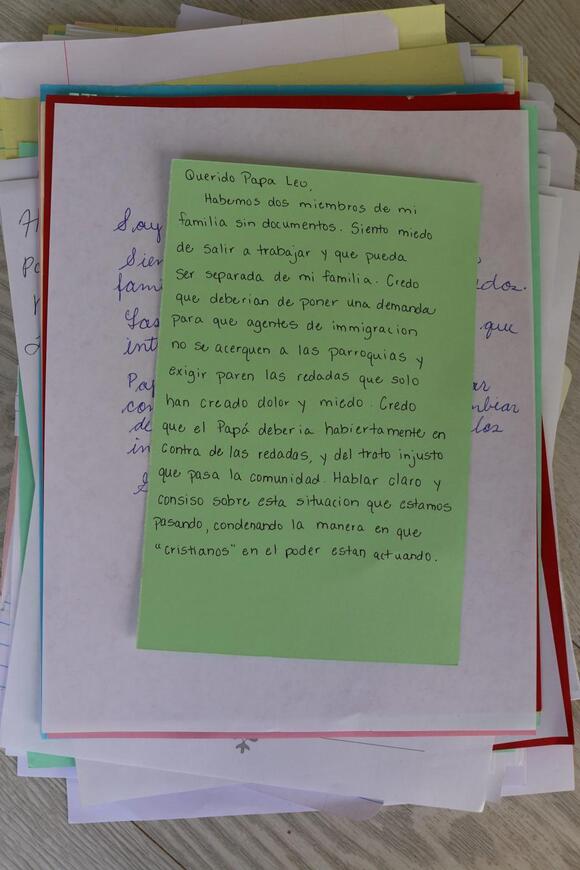 Querido Papa Leo,
Habemos dos miembros de mi
familia sin documentos. Siento miedo
de salir a trabajar y que pueda
ser separada de mi familia. Credo
que deberian de poner una demanda
para que agentes de immigracion
no se acerquen a las parroquias y
exigir paren las redadas que solo
han creado dolor y miedo. Credo
que el Papá deberia habiertamente en
contra de las redadas, y del trato injusto
que pasa la comunidad. Hablar claro y
consiso sobre esta situacion que estamos
pasando, condenando la manera en que
"cristianos" en el poder estan actuando.
Soy
que